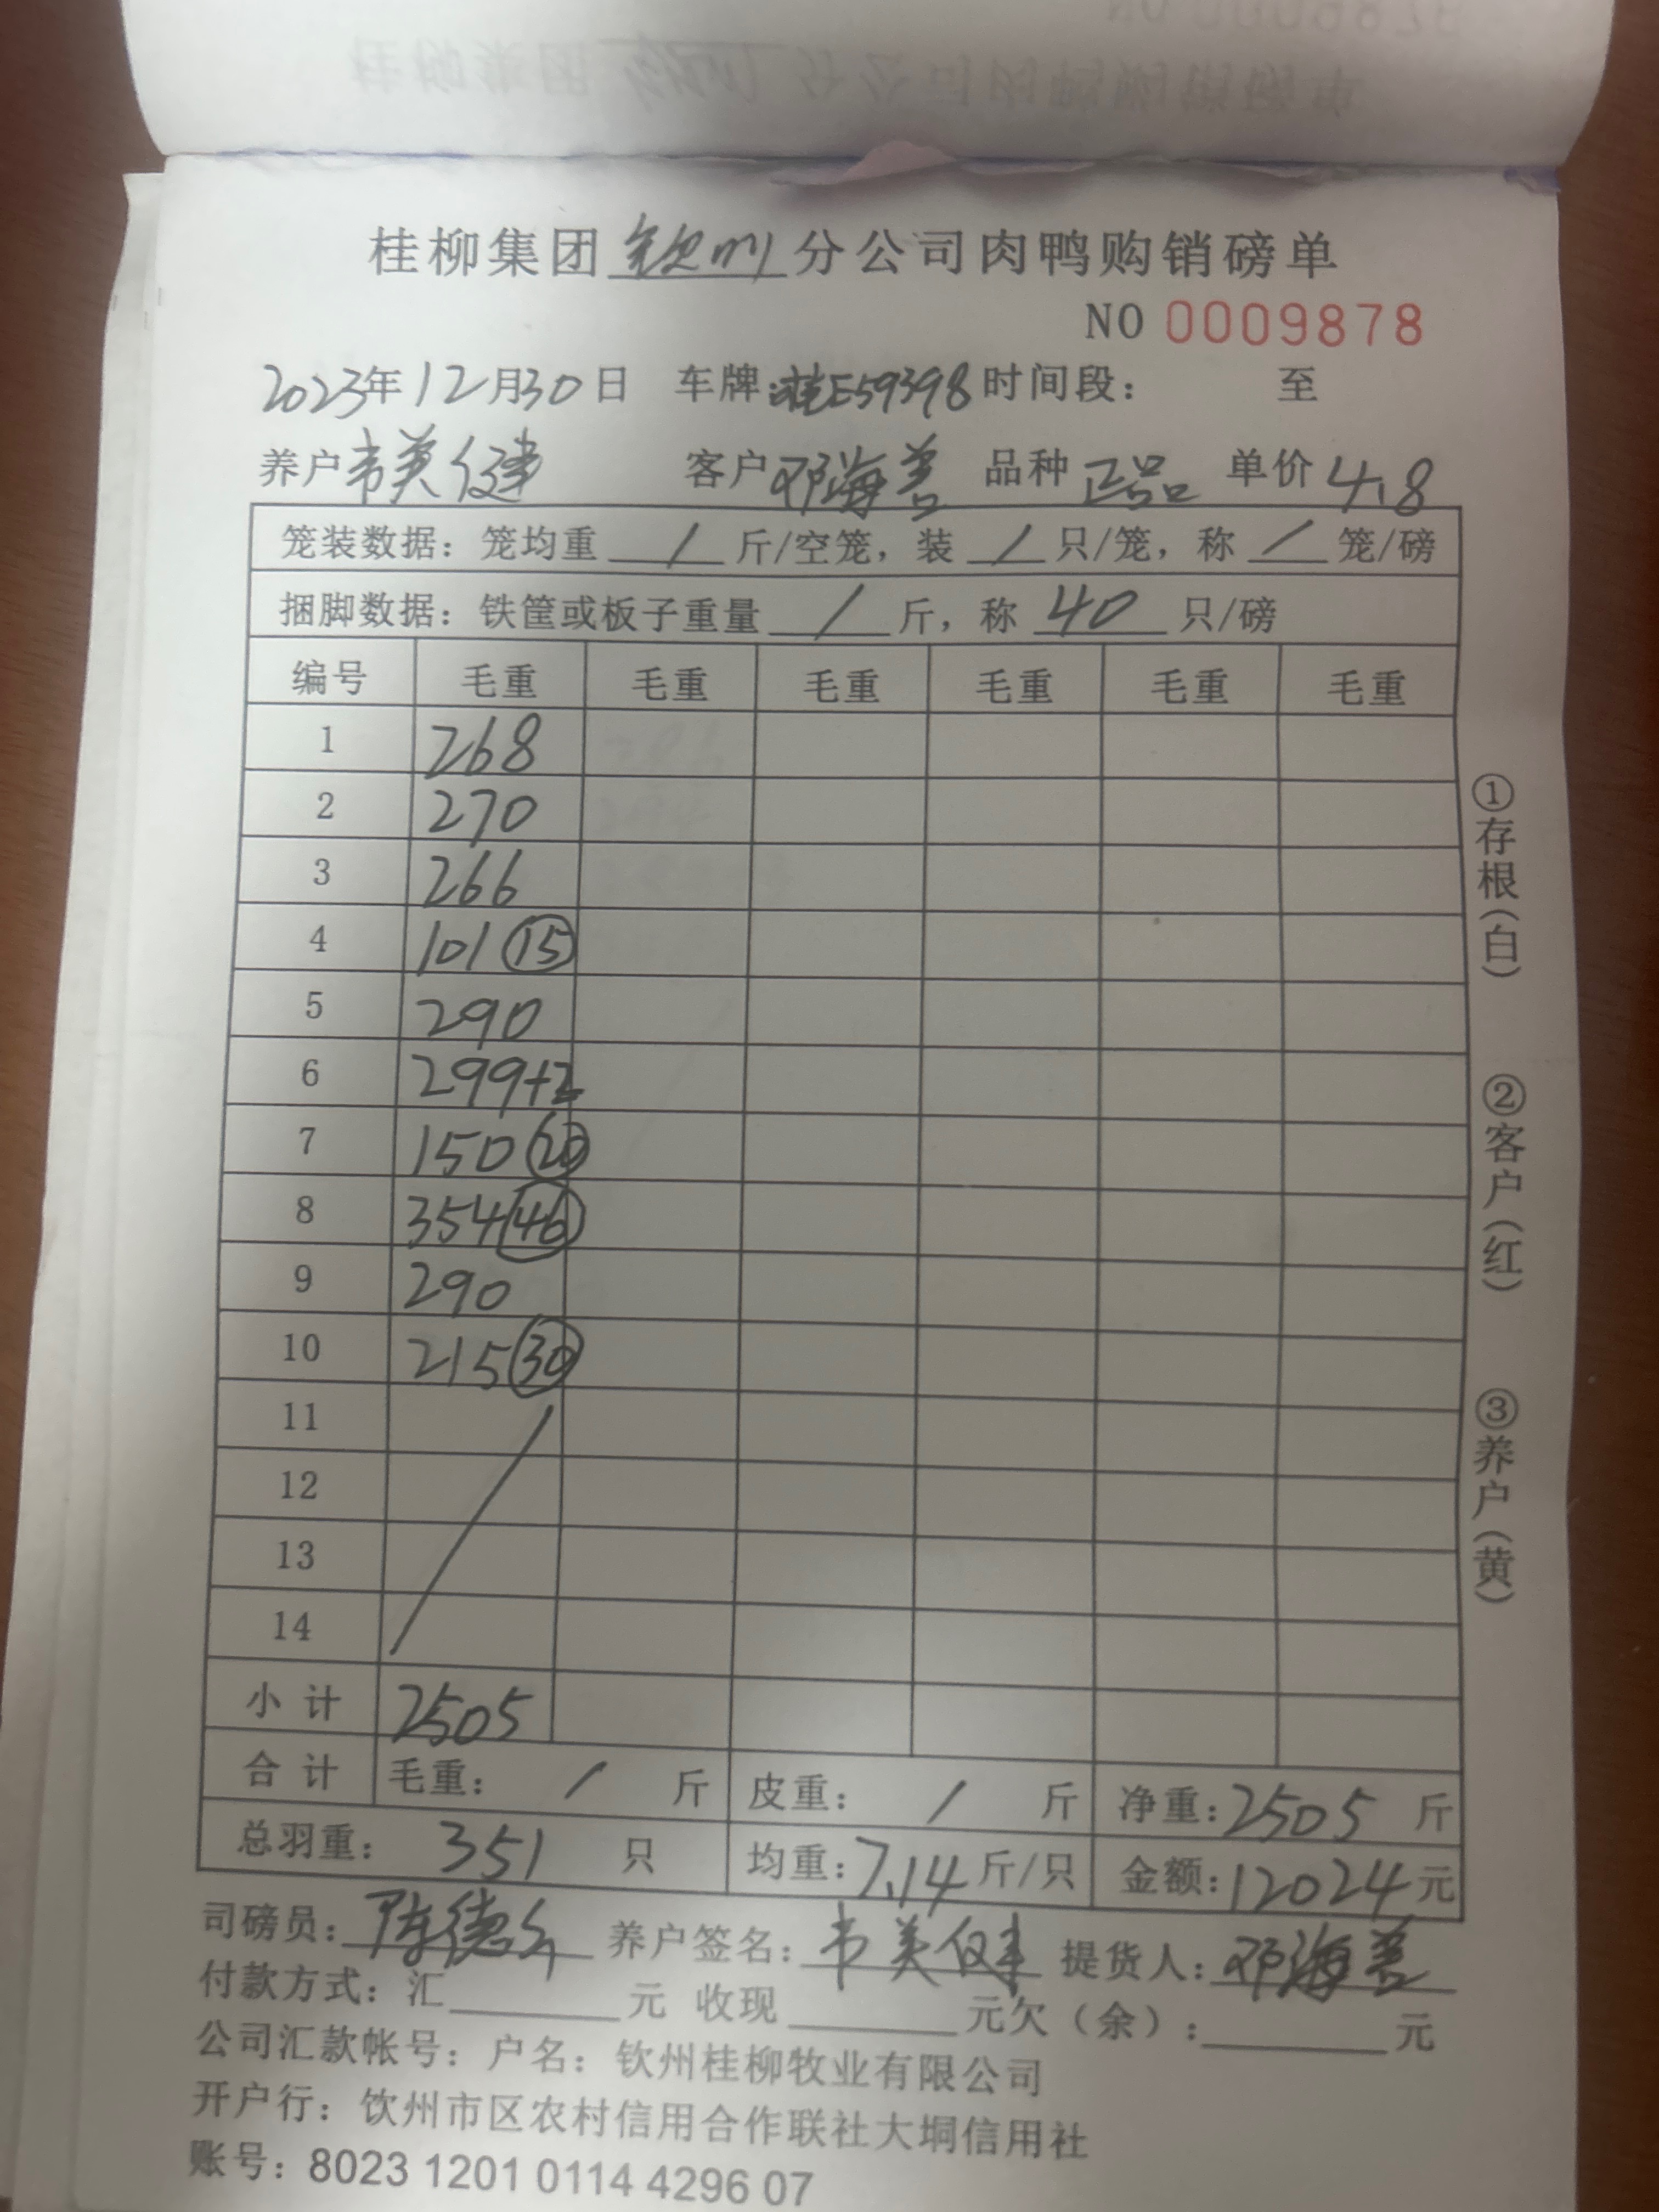 桂柳集团钦州分公司肉鸭购销磅单
NO 0009878
2023年12月30日 车牌:桂E59398 时间段: 至
养户韦美健 客户邓海善 品种正品 单价4.8
笼装数据: 笼均重 / 斤/空笼, 装 / 只/笼, 称 / 笼/磅
捆脚数据: 铁筐或板子重量 / 斤, 称 40 只/磅
编号 毛重 毛重 毛重 毛重 毛重 毛重
1 268
2 270
3 266
4 101 (15)
5 290
6 299+2
7 150 (20)
8 354 (46)
9 290
10 215 (30)
11
12
13
14
小计 2505
合计 毛重: / 斤 皮重: / 斤 净重: 2505 斤
总羽重: 351 只 均重: 7.14 斤/只 金额: 12024 元
司磅员: 陈德 养户签名: 韦美健 提货人: 邓海善
付款方式: 汇 元 收现 元欠(余): 元
公司汇款帐号: 户名: 钦州桂柳牧业有限公司
开户行: 钦州市区农村信用合作联社大垌信用社
账号: 8023 1201 0114 4296 07
①存根(白)
②客户(红)
③养户(黄)